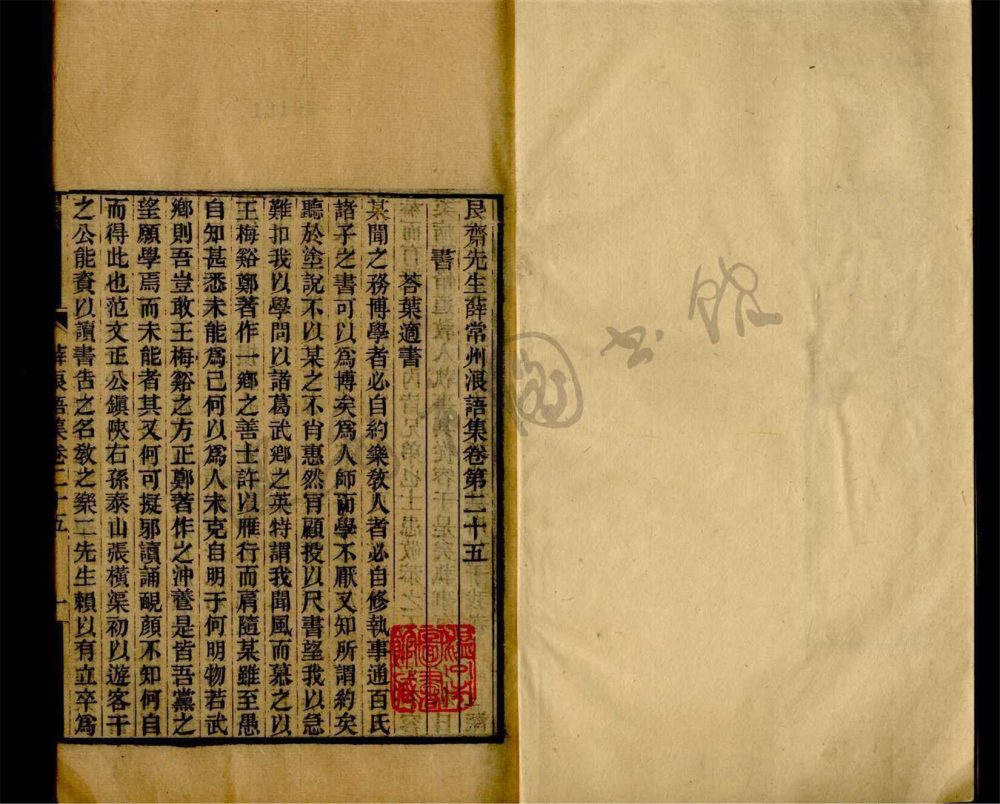 艮齋先生薛常州浪語集卷第二十五
書
荅葉適書
某聞之務博學者必自約樂敎人者必自修執事通百氏
諸子之書可以爲博矣爲人師而學不厭又知所謂約矣
聽於塗說不以某之不肖惠然肎顧投以尺書望我以急
難扣我以學問以諸葛武鄉之英特謂我聞風而慕之以
王梅谿鄭著作一鄉之善士許以雁行而肩隨某雖至愚
自知甚悉未能爲己何以爲人未克自明于何明物若武
鄉則吾豈敢王梅谿之方正鄭著作之沖養是皆吾黨之
望願學焉而未能者其又何可擬邪讀誦靦顏不知何自
而得此也范文正公鎭陝右孫泰山張橫渠初以遊客干
之公能資以讀書吿之名敎之樂二先生賴以有立卒爲
浪語集卷二十五
一
圖書館